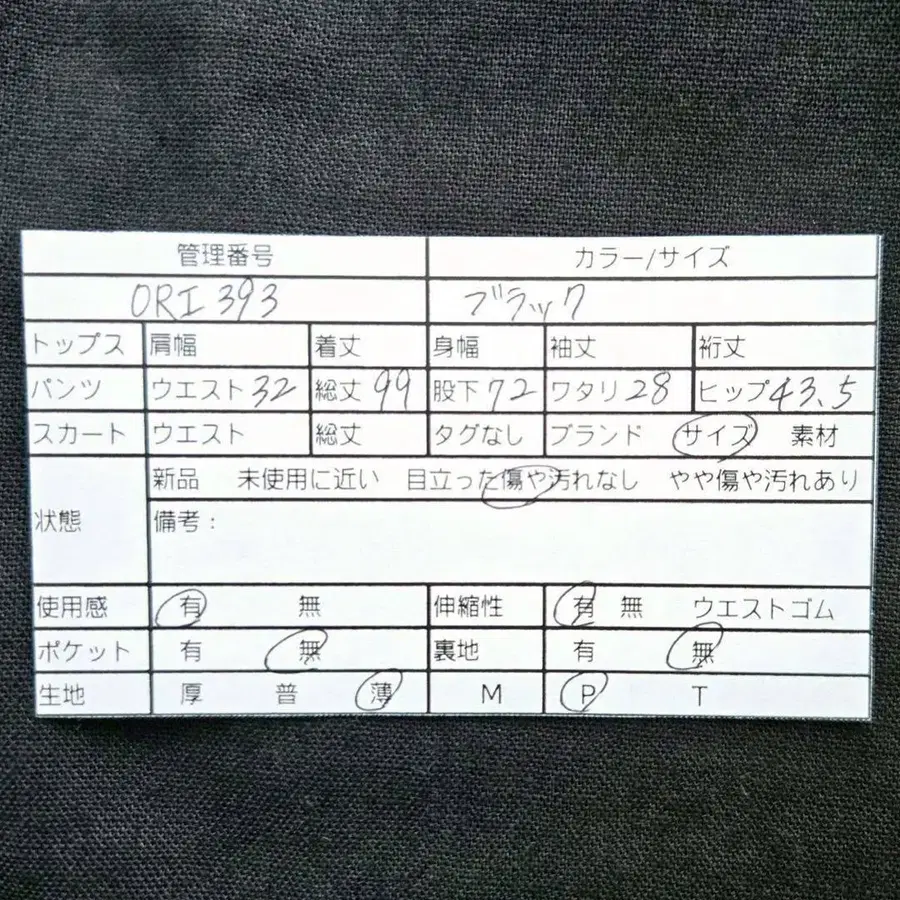 管理番号 カラー/サイズ
ORI 393 ブラック
トップス 肩幅 着丈 身幅 袖丈 裄丈
パンツ ウエスト 32 総丈 99 股下 72 ワタリ 28 ヒップ 43.5
スカート ウエスト 総丈 タグなし ブランド サイズ 素材
状態 新品 未使用に近い 目立った傷や汚れなし やや傷や汚れあり
備考：
使用感 有 無 伸縮性 有 無 ウエストゴム
ポケット 有 無 裏地 有 無
生地 厚 普 薄 M P T